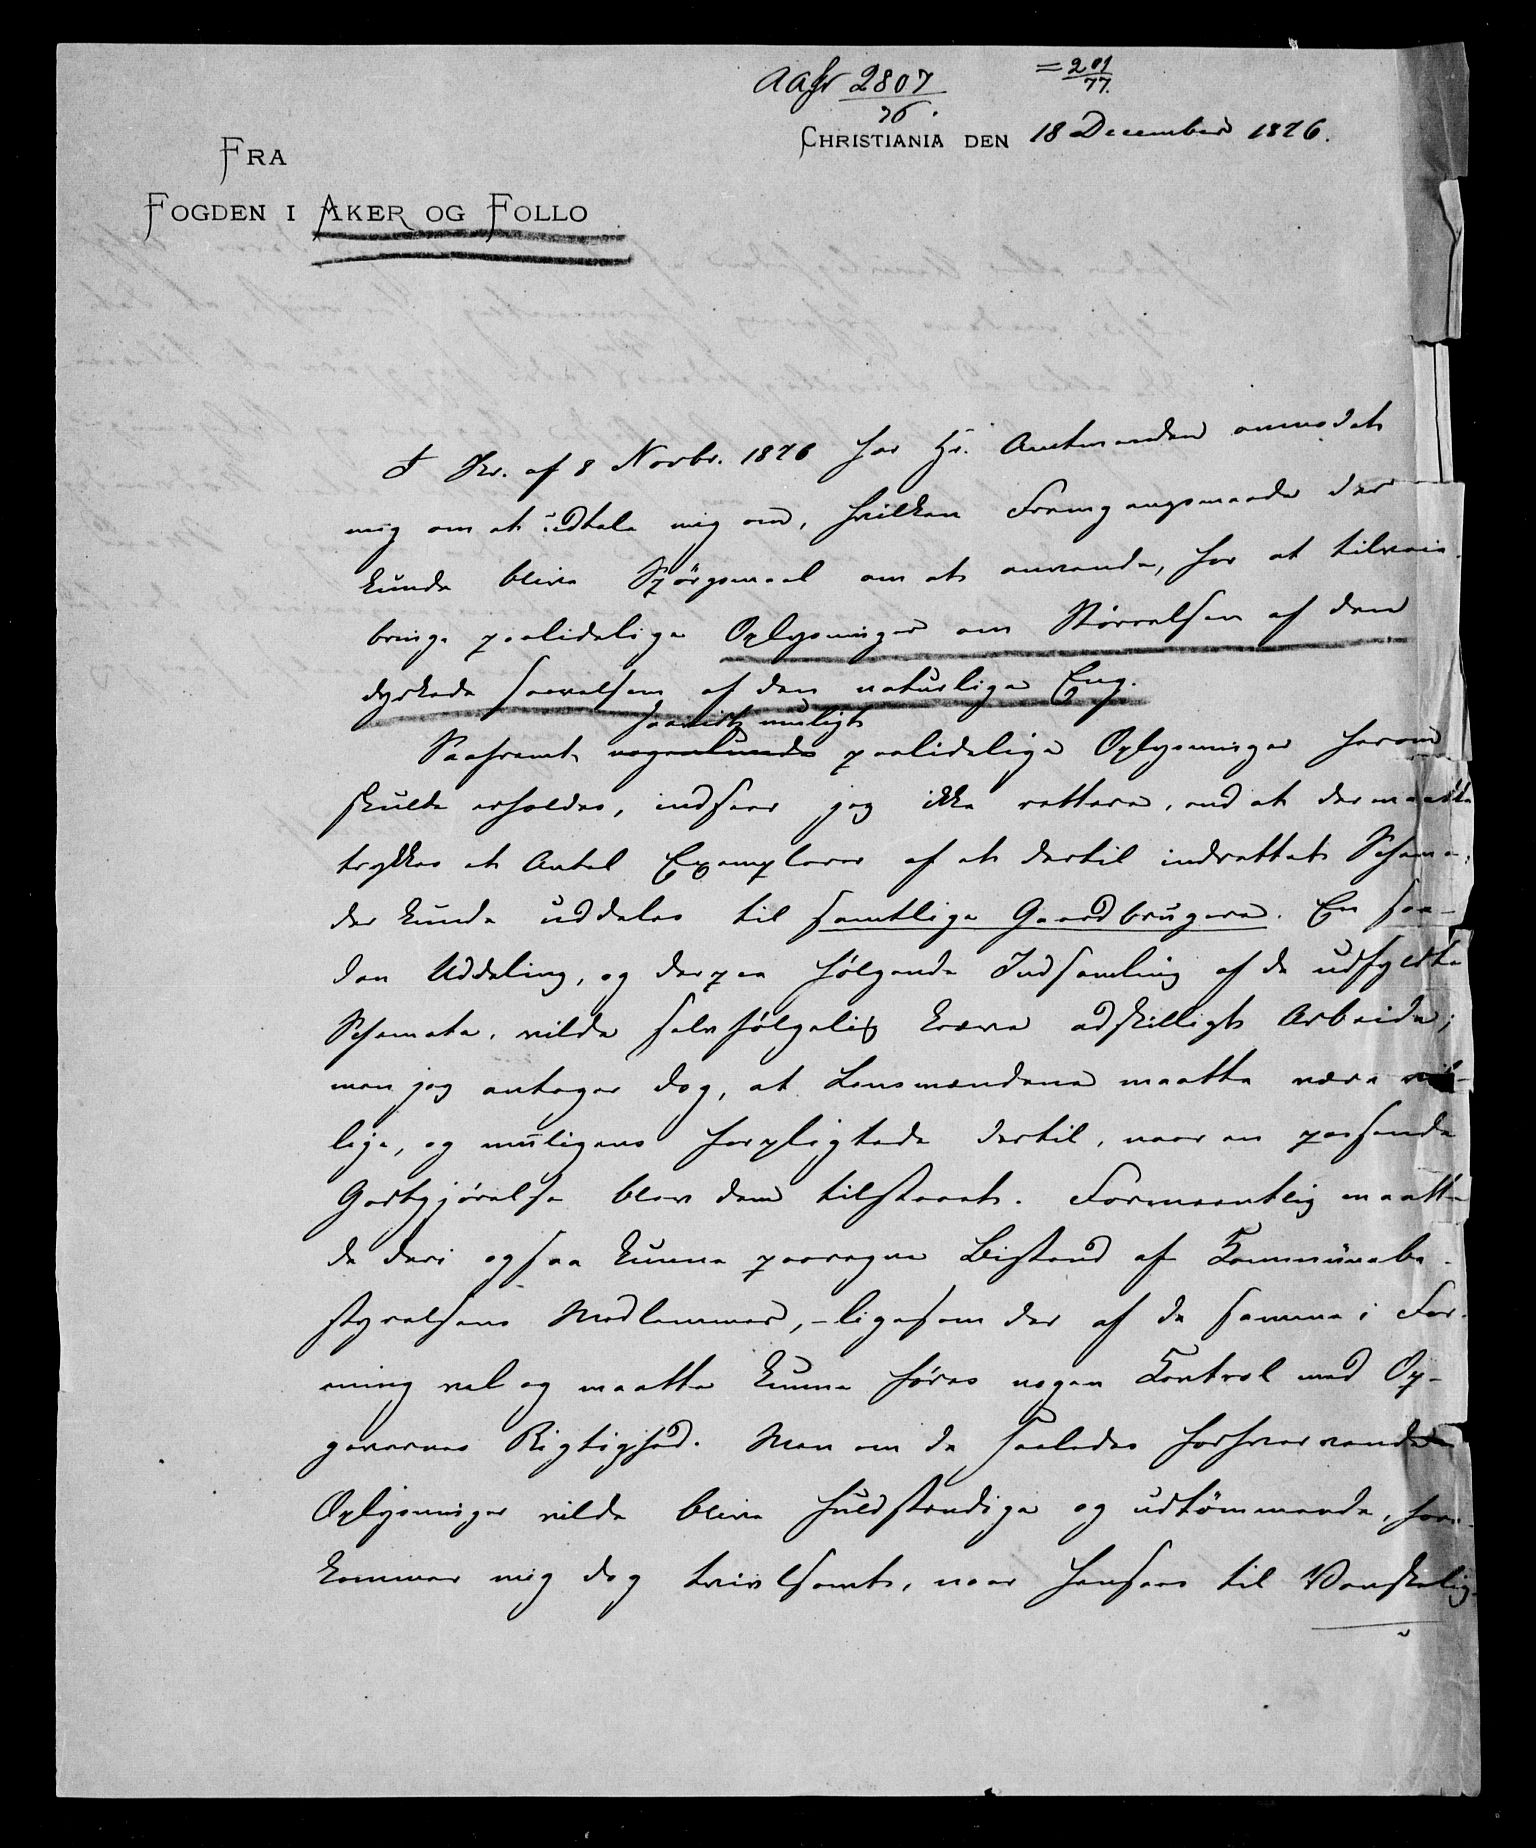 AaJr 2807/76.
= 201/77.
CHRISTIANIA DEN 18 December 1876.
FRA
FOGDEN I AKER OG FOLLO
I Skr. af 8 Novbr. 1876 har Hr. Amtmanden anmodet
mig om at udtale mig om, hvilken Fremgangsmaade der
kunde blive Spørgsmaal om at anvende, for at tilveie-
bringe paalidelige Oplysninger om Størrelsen af den
dyrkede saavelsom af den naturlige Eng.
saavidt muligt
Saafremt nogenlunde paalidelige Oplysninger herom
skulde erholdes, indseer jeg ikke rettere, end at der maatte
trykkes et Antal Exemplarer af et dertil indrettet Schema,
der kunde uddeles til samtlige Gaardbrugere. En saa-
dan Uddeling, og derpaa følgende Indsamling af de udfyldte
Schemata, vilde selvfølgelig kræve adskilligt Arbeide;
men jeg antager dog, at Lensmændene maatte være vil-
lige, og muligens forpligtede dertil, naar en passende
Godtgjørelse blev dem tilstaaet. Formeentlig maatte
de deri ogsaa kunne paaregne Bistand af Kommunebe-
styrelsens Medlemmer, - ligesom der af de samme i For-
ening vel og maatte kunne føres nogen Kontrol med Op-
gavernes Rigtighed. Men om de saaledes erhvervende
Oplysninger vilde blive fuldstændige og udtømmende, fore-
kommer mig dog tvivlsomt, naar hensees til Vanskelig-